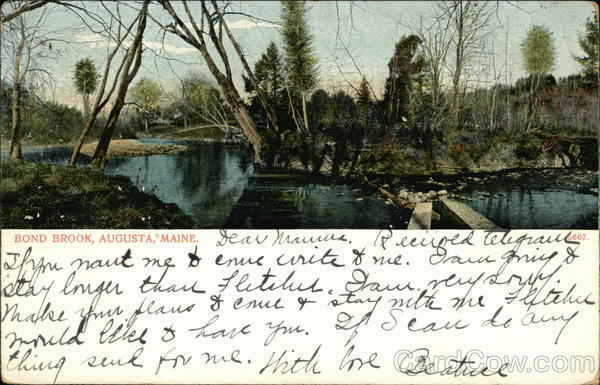 BOND BROOK, AUGUSTA, MAINE.
5607.
Dear Mamma. Received telegram
If you want me to come write to me. I am going to
stay longer than Fletcher. I am very sorry.
Make your plans to come & stay with me Fletcher
would like to have you. If I can do any
thing send for me. With love Beatrice
CardCow.com